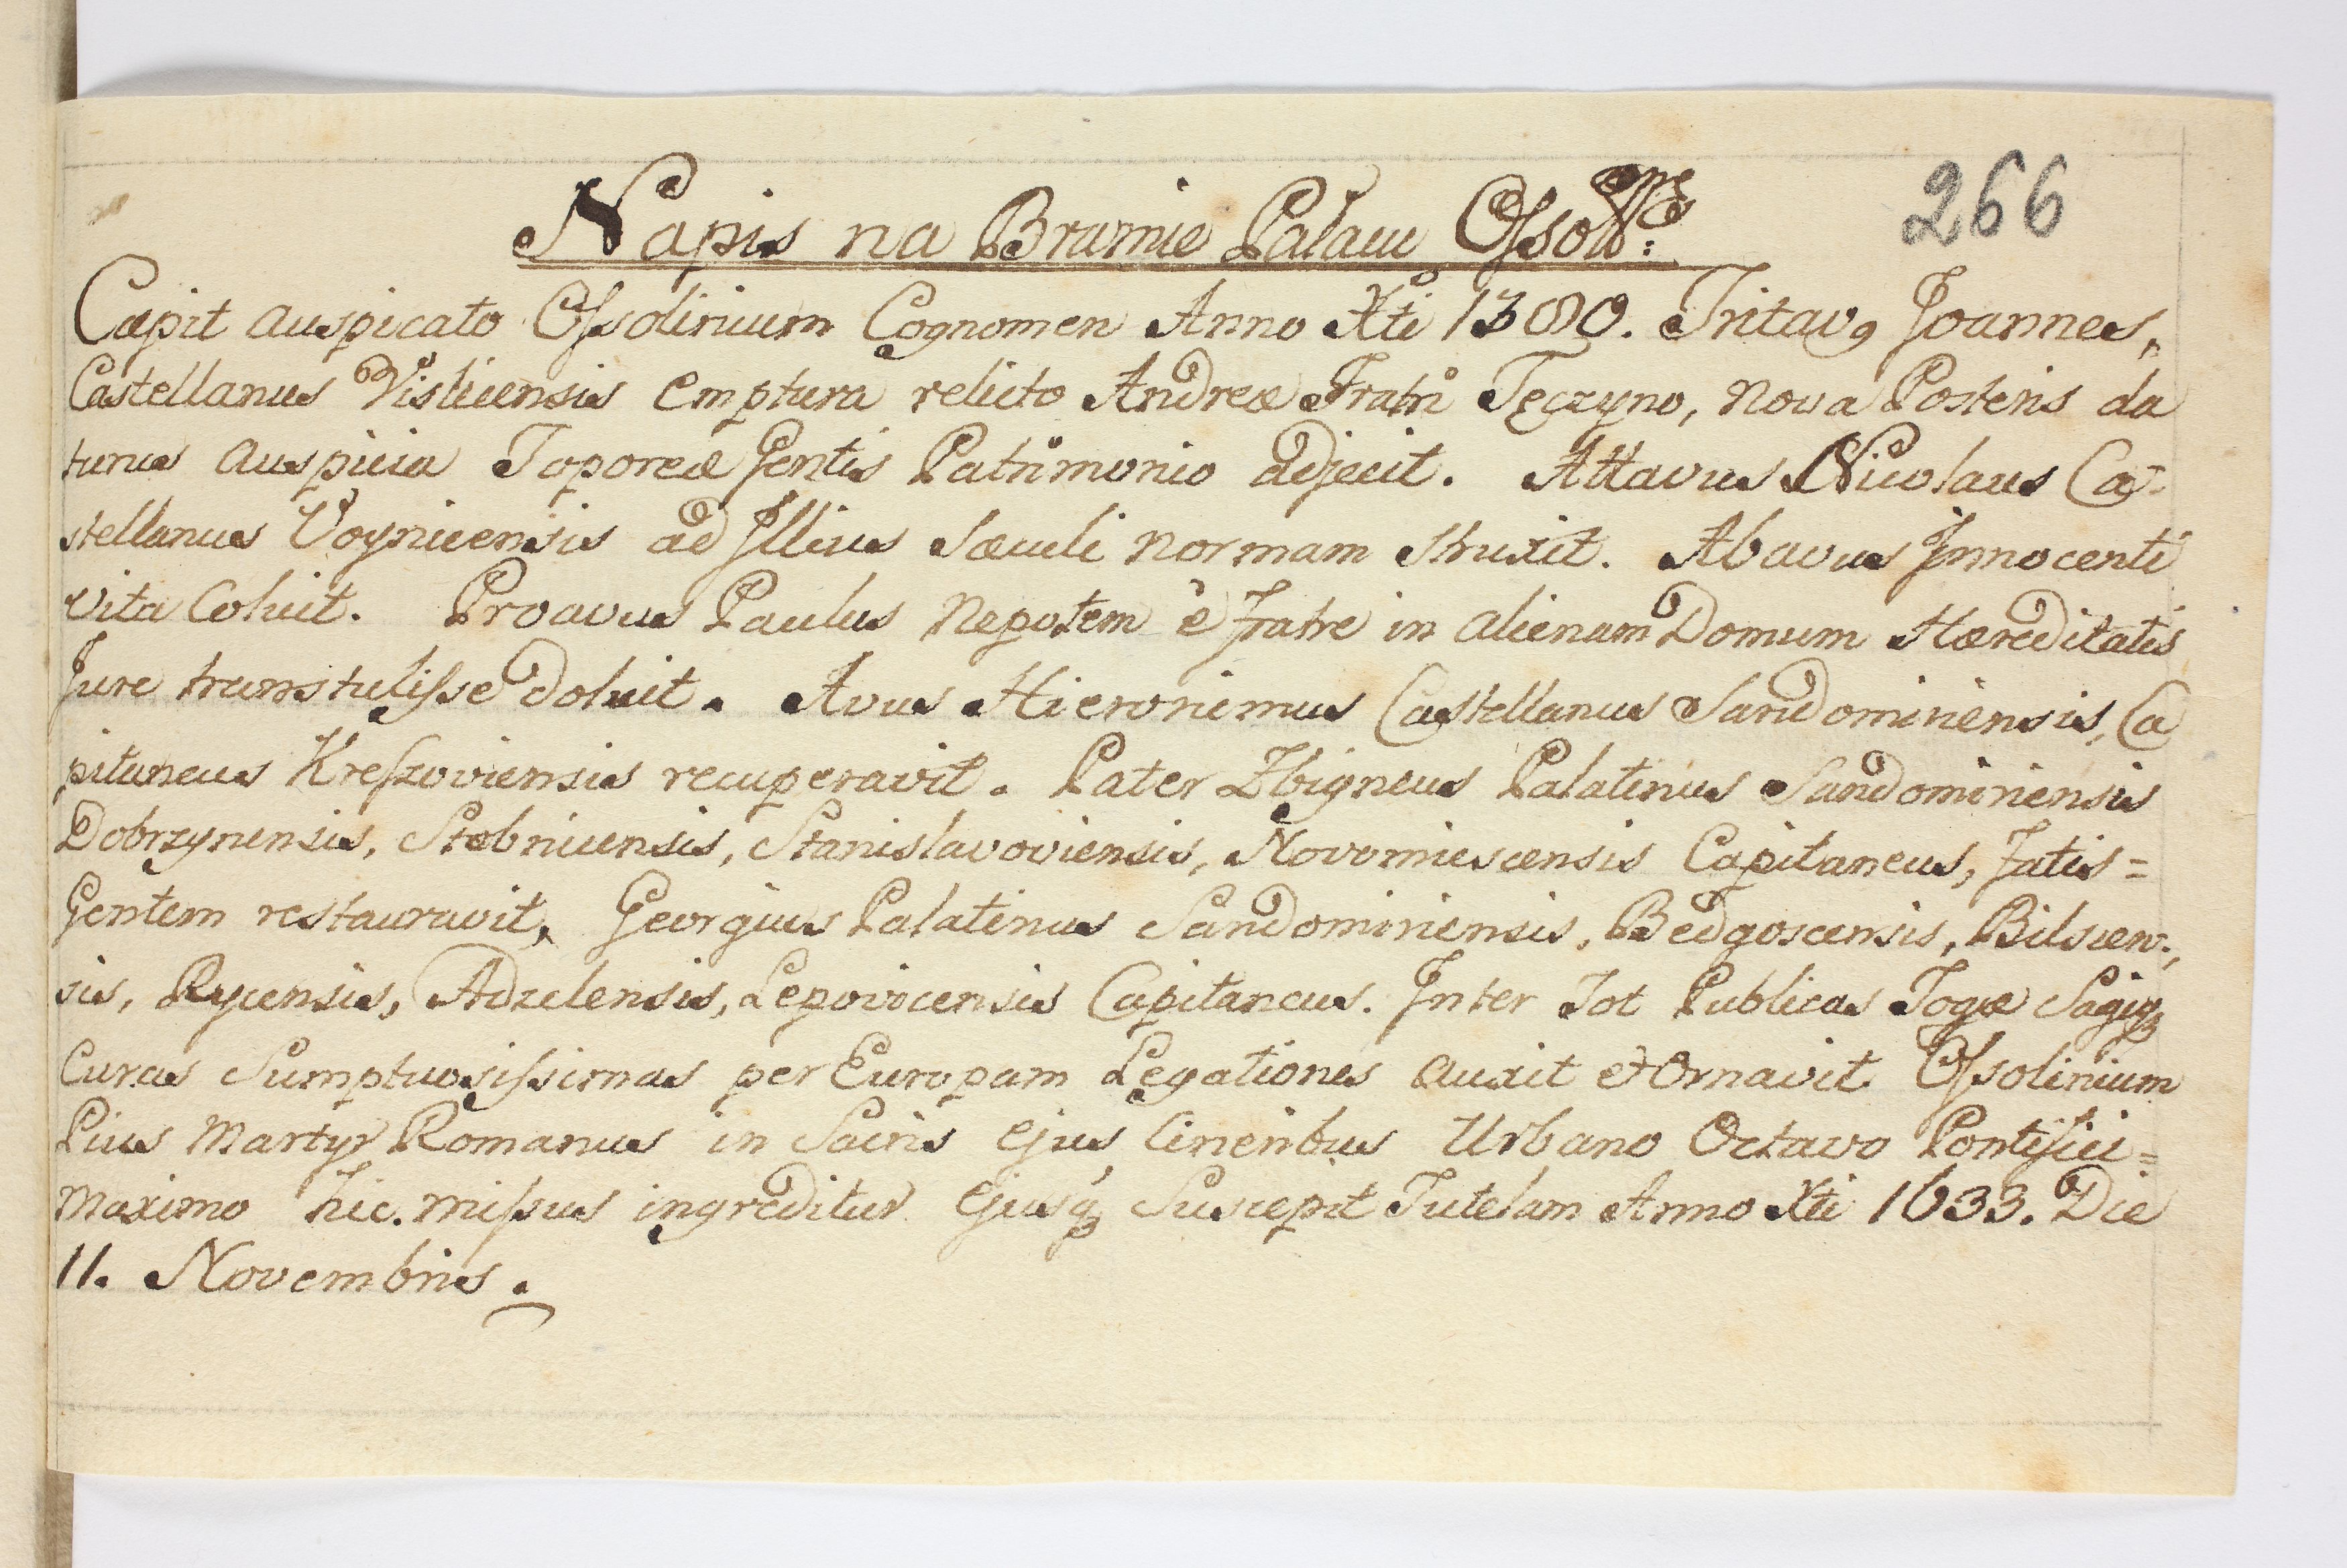 266
Napis na Bramie Pałacu Ossol:
Cæpit auspicato Ossolinium Cognomen Anno Xti 1380. Tritavꝰ Joannes,
Castellanus Visliciensis Emptura relicto Andreæ Fratri Tęczyno, nova Posteris da
turus auspicia Toporeæ Gentis Patrimonio adjecit. Attavus Nicolaus Ca-
stellanus Voynicensis ad Illius Sæculi normam Struxit. Abavus Innocenti
vita Coluit. Proavus Paulus Nepotem è Fratre in alienam Domum Hæreditatis
Jure transtulisse doluit. Avus Hieronimus Castellanus Sandomiriensis, Ca
pitaneus Kreszoviensis recuperavit. Pater Zbigneus Palatinus Sandomiriensis
Dobrzynensis, Stobnicensis, Stanislavoviensis, Novomiescensis Capitaneus, Fatis=
Gentem restauravit, Georgius Palatinus Sandomiriensis, Bedgoscensis, Bilscen-,
sis, Rycensis, Adzelensis, Lepovicensis Capitaneus. Inter Tot Publicas Togæ Sagiqꝫ
Curas Sumptuosissimas per Europam Legationes auxit et Ornavit Ossolinium
Pius Martyr Romanus in Sacris ejus Cineribus Urbano Octavo Pontifici=
Maximo hic. missus ingreditur ejusqꝫ Suscepit Tutelam Anno Xti 1633. Die
11. Novembris.